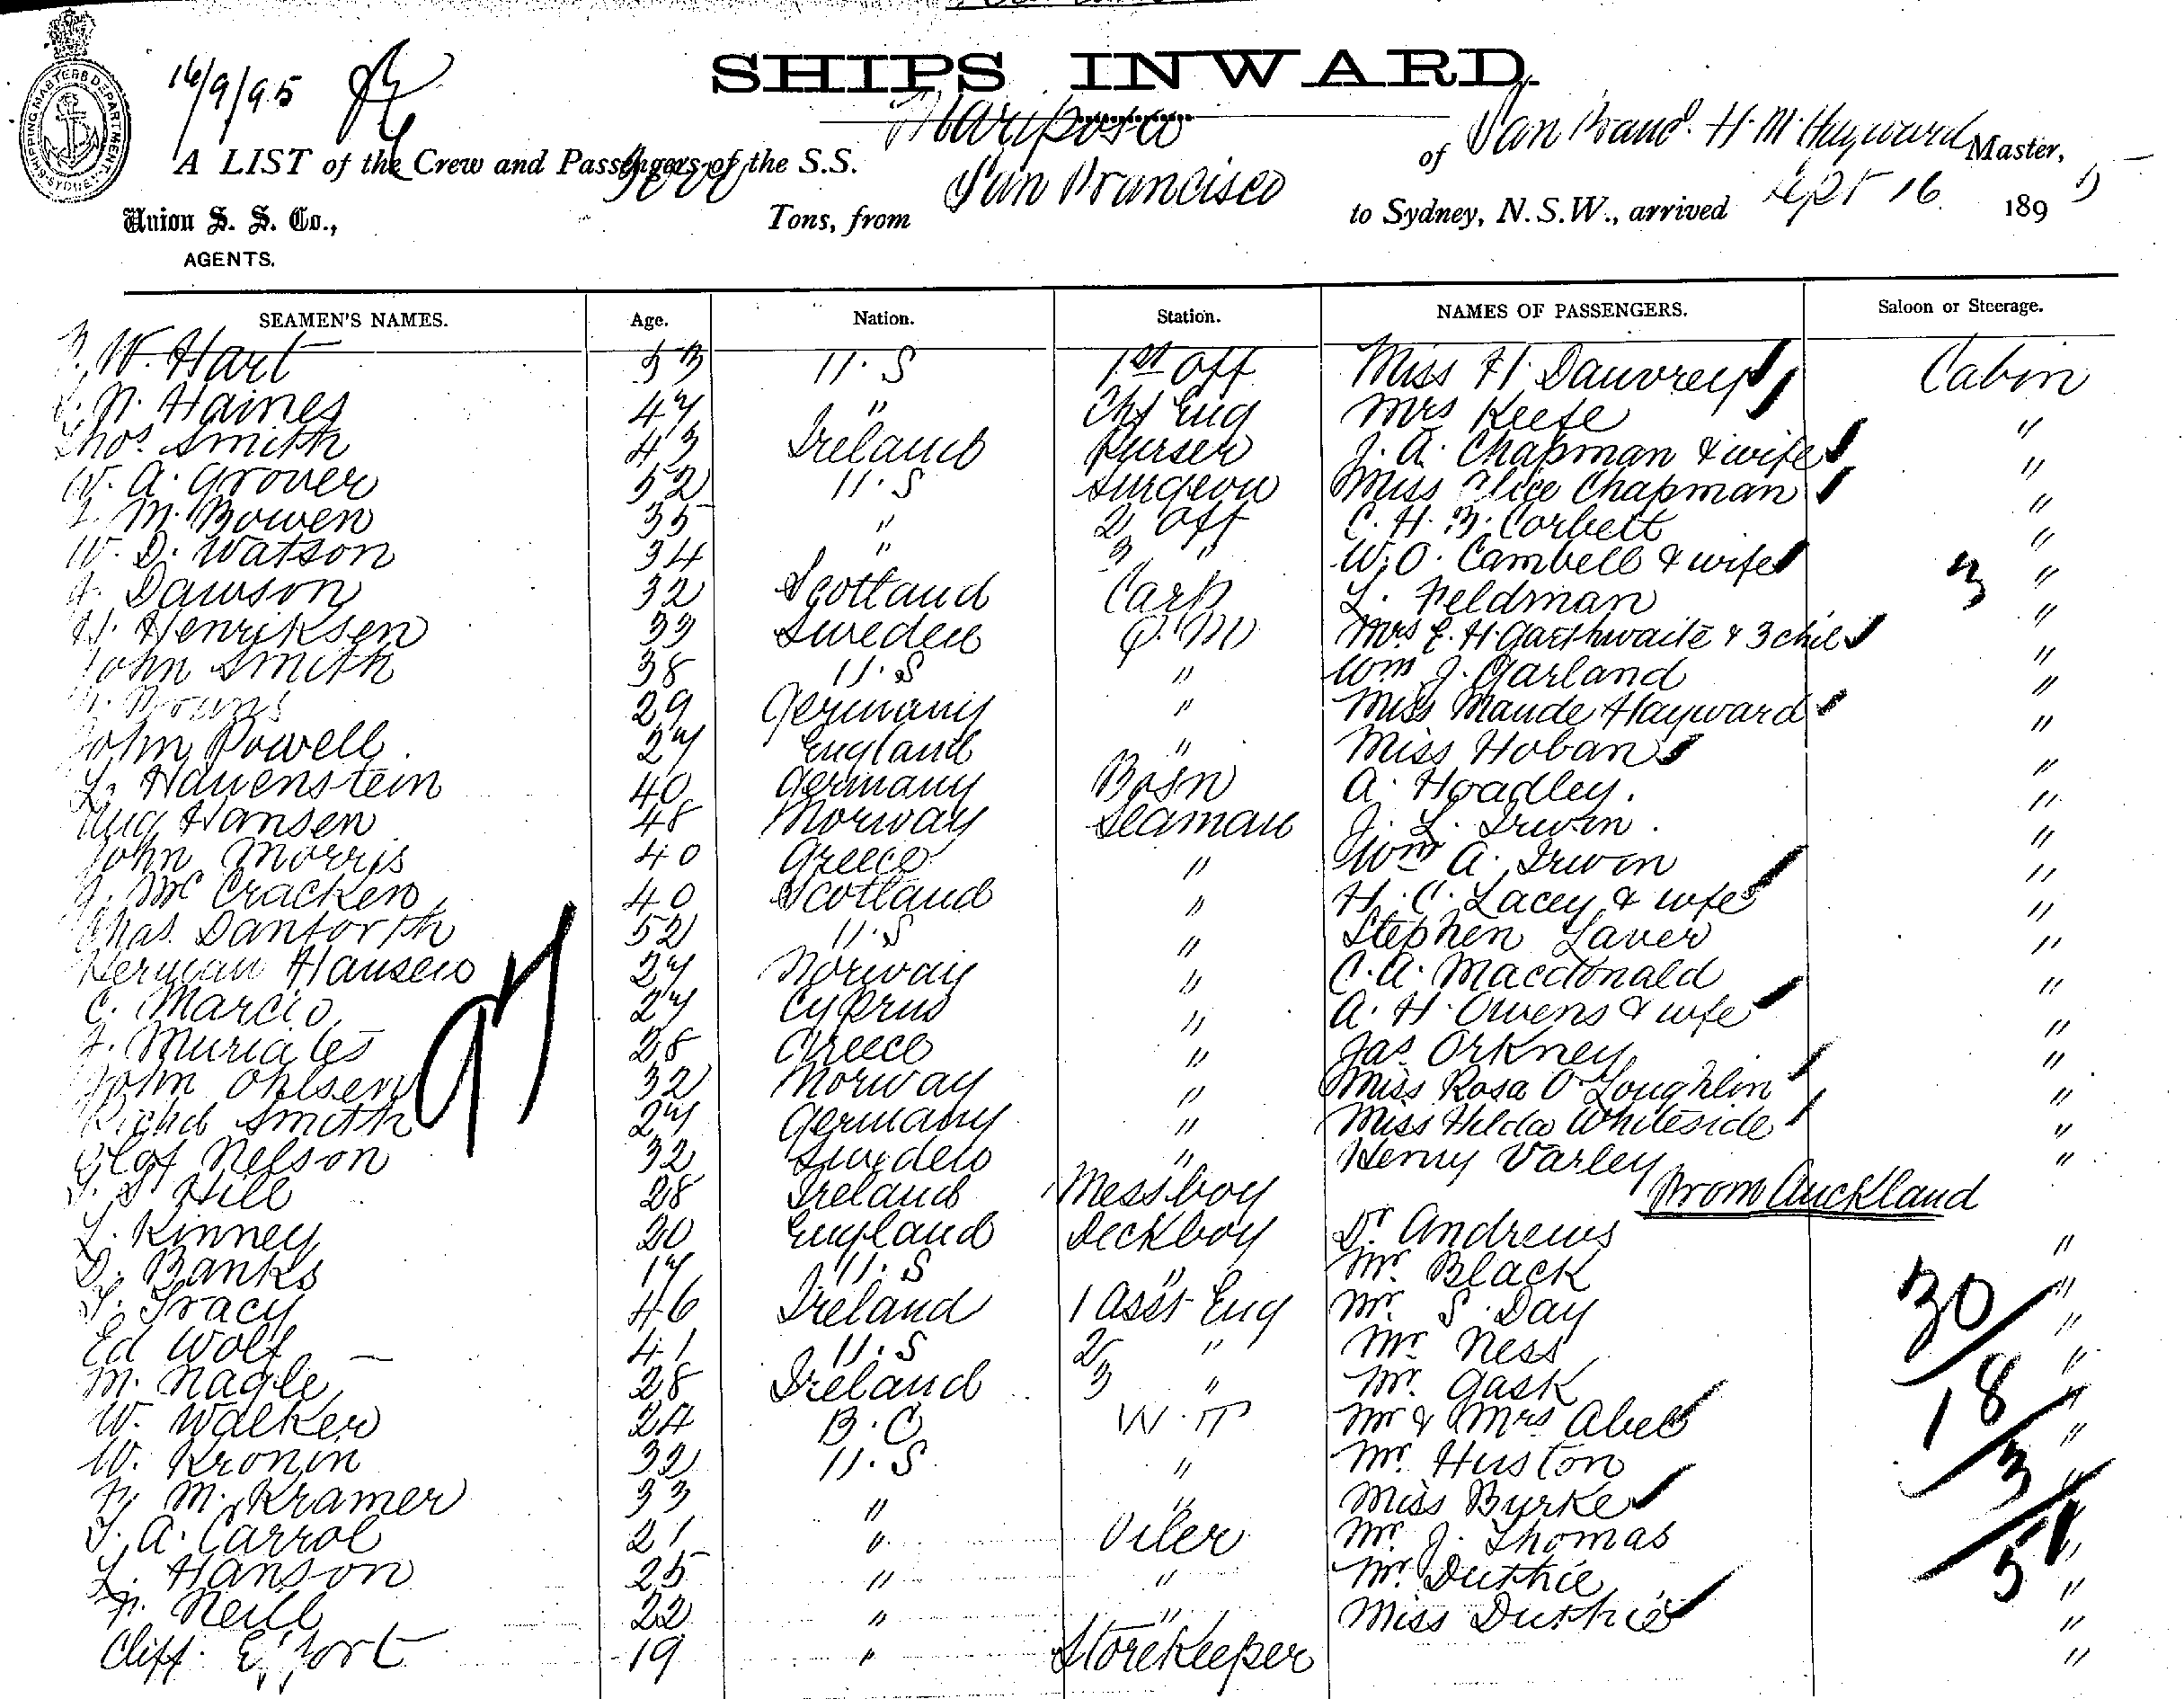 16/9/95
SHIPS INWARD
A LIST of the Crew and Passengers of the S.S. Mariposa of San Franco. H. M. Hayward Master,
Union S. S. Co., 3000 Tons, from San Francisco to Sydney, N.S.W., arrived Sept 16 1895
AGENTS.
SHIPPING MASTERS DEPARTMENT. SYDNEY
SEAMEN'S NAMES. Age. Nation. Station. NAMES OF PASSENGERS. Saloon or Steerage.
W. Hart 53 U.S 1st Off Miss H. Dauvrey Cabin
N. Haines 47 " Chf Eng Mrs Keese "
Thos Smith 43 Ireland Purser J. A. Chapman & wife "
W. A. Grover 52 U.S Surgeon Miss Alice Chapman "
M. Bowen 35 " 2 Off C. H. B. Corbett "
W. D. Watson 34 " 3 " W. O. Cambell & wife "
Dawson 32 Scotland Carp L. Feldman 3 "
H. Henriksen 33 Sweden Q. M Mrs E. H. Garthwaite & 3 chil "
John Smith 38 U.S " Wm J. Garland "
29 Germany " Miss Maude Hayward "
John Powell 27 England " Miss Hoban "
L. Hauenstein 40 Germany Bosn A. Hoadley. "
Aug Hansen 48 Norway Seaman J. L. Irwin. "
John Morris 40 Greece " Wm A. Irwin "
J. McCracken 40 Scotland " H. C. Lacey & wife "
Chas. Danforth 52 U.S " Stephen Laver "
Herman Hansen 27 Norway " C. A. Macdonald "
C. Marcio 27 Cyprus " A. H. Owens & wife "
28 Greece " Jas. Orkney "
John Ohlsen 32 Norway " Miss Rosa O'Loughlin "
Richd Smith 27 Germany " Miss Hilda Whiteside "
Olof Nelson 32 Sweden " Henry Varley "
97
S. Hill 28 Ireland Messboy From Auckland
L. Kinney 20 England Deckboy Dr. Andrews "
D. Banks 17 U.S " Mr. Black "
T. Tracy 46 Ireland 1 Asst Eng Mr. S. Day "
Ed Wolf 41 U.S 2 " Mr. Ness "
M. Nagle 28 Ireland 3 " Mr. Gask "
W. Walker 24 B. C W. T Mr & Mrs Abel "
W. Kronin 32 U.S. " Mr. Huston "
M. Kramer 33 " " Miss Burke "
T. A. Carrol 21 " Oiler Mr. J. Thomas "
L. Hanson 25 " " Mr. Duthie "
F. Neill 22 " " Miss Duthie "
Cliff. E. Fort 19 " Storekeeper "
30
18
3
51